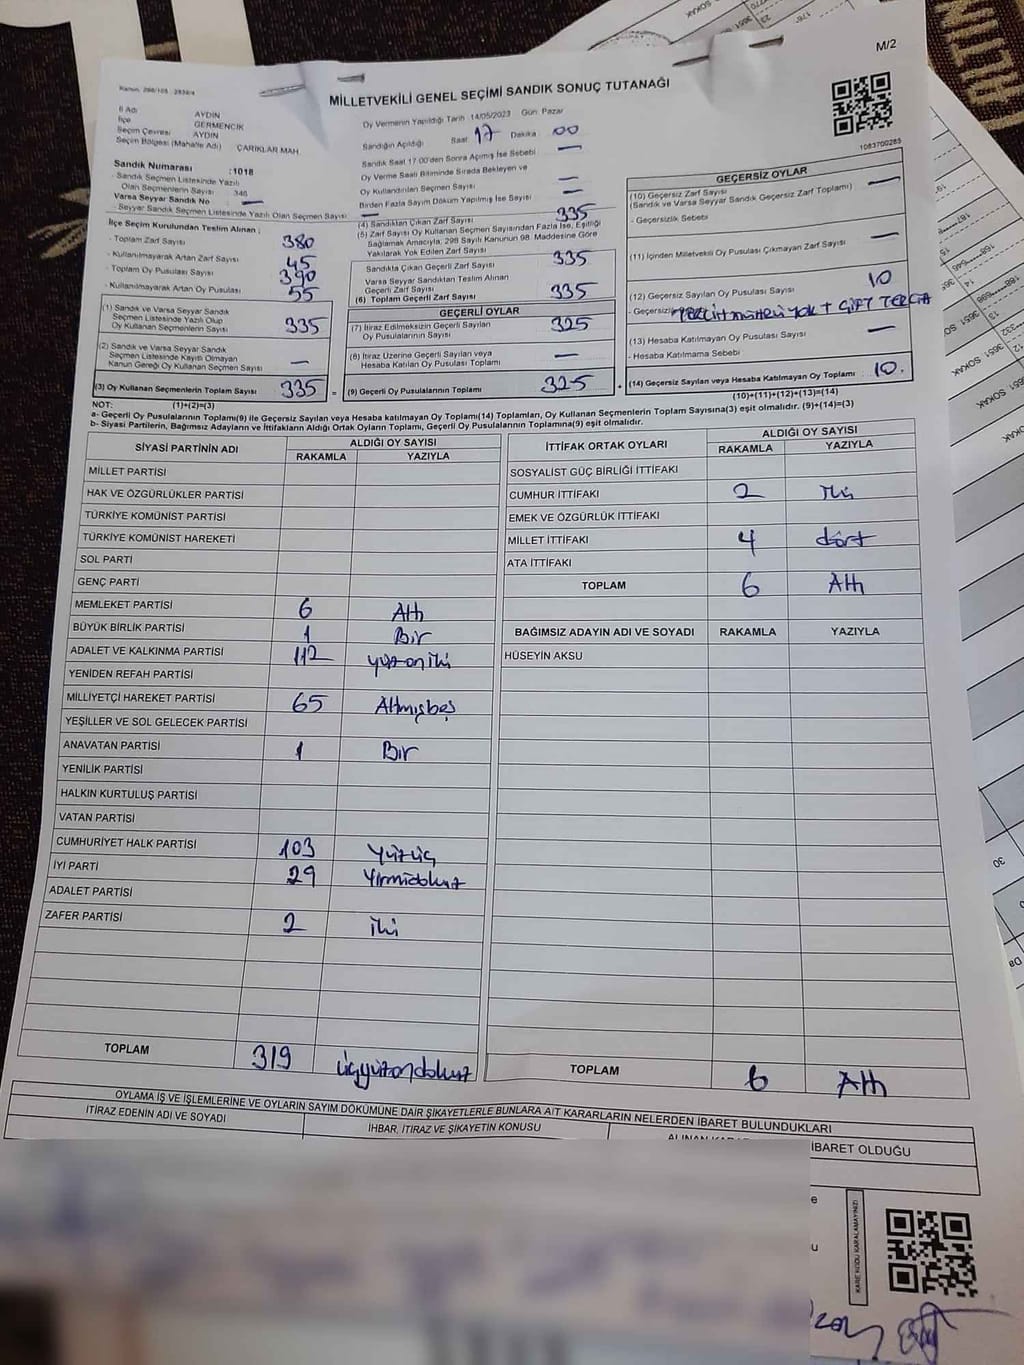 M/2
Kanun, 298/105 - 2839/a
MİLLETVEKİLİ GENEL SEÇİMİ SANDIK SONUÇ TUTANAĞI
İl Adı AYDIN
İlçe GERMENCİK
Seçim Çevresi AYDIN
Seçim Bölgesi (Mahalle Adı) ÇARIKLAR MAH.
Sandık Numarası : 1018
- Sandık Seçmen Listesinde Yazılı
Olan Seçmenlerin Sayısı 346
Varsa Seyyar Sandık No —
- Seyyar Sandık Seçmen Listesinde Yazılı Olan Seçmen Sayısı: —
Oy Vermenin Yapıldığı Tarih 14/05/2023 Gün Pazar
Sandığın Açıldığı Saat 17 Dakika 00
Sandık Saat 17:00'den Sonra Açılmış İse Sebebi —
Oy Verme Saati Bitiminde Sırada Bekleyen ve
Oy Kullandırılan Seçmen Sayısı —
Birden Fazla Sayım Döküm Yapılmış İse Sayısı —
1083700285
İlçe Seçim Kurulundan Teslim Alınan ;
- Toplam Zarf Sayısı 380
- Kullanılmayarak Artan Zarf Sayısı 45
- Toplam Oy Pusulası Sayısı 390
- Kullanılmayarak Artan Oy Pusulası 55
(1) Sandık ve Varsa Seyyar Sandık
Seçmen Listesinde Yazılı Olup
Oy Kullanan Seçmenlerin Sayısı 335
(2) Sandık ve Varsa Seyyar Sandık
Seçmen Listesinde Kayıtlı Olmayan
Kanun Gereği Oy Kullanan Seçmen Sayısı —
(3) Oy Kullanan Seçmenlerin Toplam Sayısı 335 =
(4) Sandıktan Çıkan Zarf Sayısı 335
(5) Zarf Sayısı Oy Kullanan Seçmen Sayısından Fazla İse, Eşitliği
Sağlamak Amacıyla, 298 Sayılı Kanunun 98. Maddesine Göre
Yakılarak Yok Edilen Zarf Sayısı
Sandıkta Çıkan Geçerli Zarf Sayısı 335
Varsa Seyyar Sandıktan Teslim Alınan
Geçerli Zarf Sayısı
(6) Toplam Geçerli Zarf Sayısı 335
GEÇERLİ OYLAR
(7) İtiraz Edilmeksizin Geçerli Sayılan
Oy Pusulalarının Sayısı 325
(8) İtiraz Üzerine Geçerli Sayılan veya
Hesaba Katılan Oy Pusulası Toplamı —
(9) Geçerli Oy Pusulalarının Toplamı 325 +
GEÇERSİZ OYLAR
(10) Geçersiz Zarf Sayısı
(Sandık ve Varsa Seyyar Sandık Geçersiz Zarf Toplamı) —
- Geçersizlik Sebebi
(11) İçinden Milletvekili Oy Pusulası Çıkmayan Zarf Sayısı —
(12) Geçersiz Sayılan Oy Pusulası Sayısı 10
- Geçersizlik YOK + ÇİFT TERCİH
(13) Hesaba Katılmayan Oy Pusulası Sayısı —
- Hesaba Katılmama Sebebi
(14) Geçersiz Sayılan veya Hesaba Katılmayan Oy Toplamı 10.
(10)+(11)+(12)+(13)=(14)
NOT: (1)+(2)=(3)
a- Geçerli Oy Pusulalarının Toplamı(9) ile Geçersiz Sayılan veya Hesaba katılmayan Oy Toplamı(14) Toplamları, Oy Kullanan Seçmenlerin Toplam Sayısına(3) eşit olmalıdır. (9)+(14)=(3)
b- Siyasi Partilerin, Bağımsız Adayların ve İttifakların Aldığı Ortak Oyların Toplamı, Geçerli Oy Pusulalarının Toplamına(9) eşit olmalıdır.
SİYASİ PARTİNİN ADI ALDIĞI OY SAYISI
RAKAMLA YAZIYLA
MİLLET PARTİSİ
HAK VE ÖZGÜRLÜKLER PARTİSİ
TÜRKİYE KOMÜNİST PARTİSİ
TÜRKİYE KOMÜNİST HAREKETİ
SOL PARTİ
GENÇ PARTİ
MEMLEKET PARTİSİ 6 Altı
BÜYÜK BİRLİK PARTİSİ 1 Bir
ADALET VE KALKINMA PARTİSİ 112 yüzoniki
YENİDEN REFAH PARTİSİ
MİLLİYETÇİ HAREKET PARTİSİ 65 Altmışbeş
YEŞİLLER VE SOL GELECEK PARTİSİ
ANAVATAN PARTİSİ 1 Bir
YENİLİK PARTİSİ
HALKIN KURTULUŞ PARTİSİ
VATAN PARTİSİ
CUMHURİYET HALK PARTİSİ 103 Yüzüç
İYİ PARTİ 29 Yirmidokuz
ADALET PARTİSİ
ZAFER PARTİSİ 2 iki
TOPLAM 319 üçyüzondokuz
İTTİFAK ORTAK OYLARI ALDIĞI OY SAYISI
RAKAMLA YAZIYLA
SOSYALİST GÜÇ BİRLİĞİ İTTİFAKI
CUMHUR İTTİFAKI 2 iki
EMEK VE ÖZGÜRLÜK İTTİFAKI
MİLLET İTTİFAKI 4 dört
ATA İTTİFAKI
TOPLAM 6 Altı
BAĞIMSIZ ADAYIN ADI VE SOYADI RAKAMLA YAZIYLA
HÜSEYİN AKSU
TOPLAM 6 Altı
OYLAMA İŞ VE İŞLEMLERİNE VE OYLARIN SAYIM DÖKÜMÜNE DAİR ŞİKAYETLERLE BUNLARA AİT KARARLARIN NELERDEN İBARET BULUNDUKLARI
İTİRAZ EDENİN ADI VE SOYADI
İHBAR, İTİRAZ VE ŞİKAYETİN KONUSU
İBARET OLDUĞU
KARE KODU KARALAMAYINIZ!